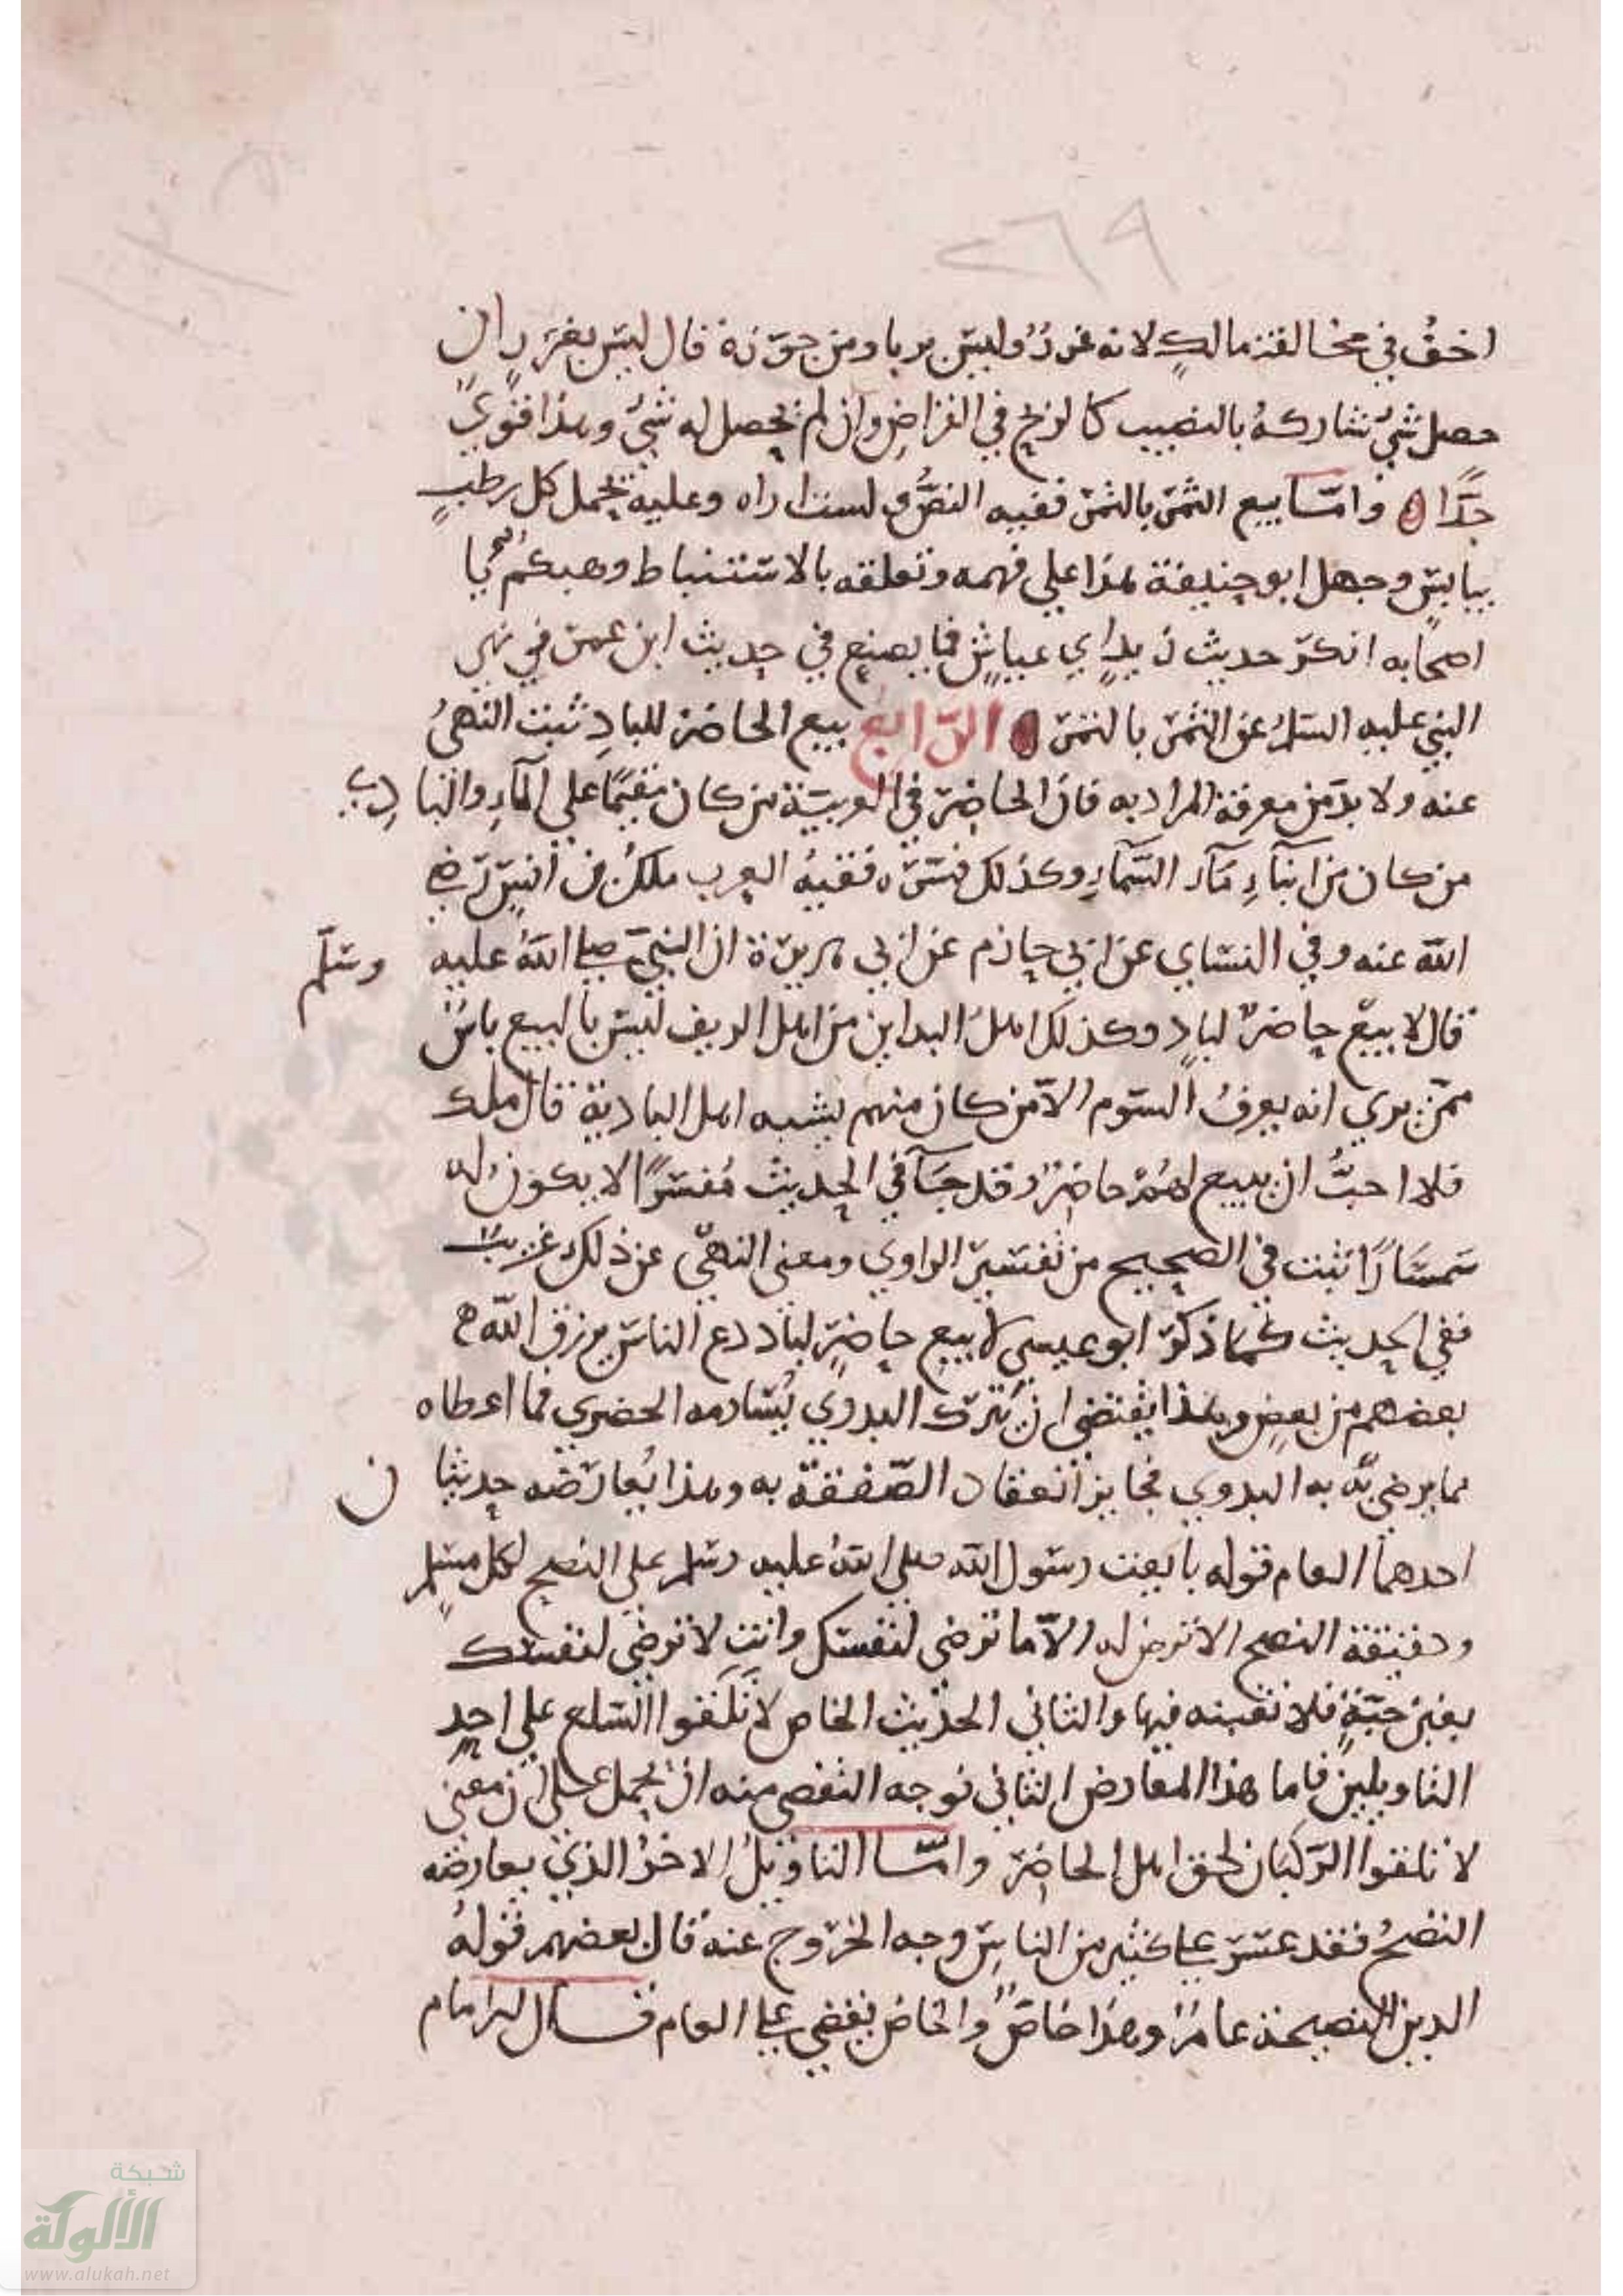 ٢٦٩
اخف في مخالفة مالك لانه غرر وليس بربا ومن جوزه قال ليس بغرر ان
حصل شي شاركه بالنصيب كالربح في القراض وان لم يحصل له شي وهذا قوي
جدا واما بيع الثمر بالتمر ففيه النص ولست اراه وعليه يحمل كل رطب
بيابس وجهل ابو حنيفة هذا علي فهمه وتعلقه بالاستنباط وهبكم يا
اصحابه انكر حديث زيد ابي عياش فما يصنع في حديث ابن عمر في نهي
النبي عليه السلم عن الثمر بالتمر الرابع بيع الحاضر للباد ثبت النهي
عنه ولا بد من معرفة المراد به فان الحاضر في العربية من كان مقيما علي الماء والبادي
من كان من ابناء ماء السماء وكذلك فسره فقيه العرب ملك عن انس رضي
الله عنه وفي النساي عن ابي حازم عن ابي هريرة ان النبي صلى الله عليه وسلم
قال لا يبيع حاضر لباد وكذلك اهل المداين من اهل الريف ليس بالبيع باس
ممن يري انه يعرف السوم الا من كان منهم يشبه اهل البادية قال ملك
فلا احب ان يبيع لهم حاضر وقد جآ في الحديث مفسرا الا يكون له
سمسارا ثبت في الصحيح من تفسير الراوي ومعني النهي عن ذلك غريب
ففي الحديث كما ذكر ابو عيسي لا يبيع حاضر لباد دع الناس يرزق الله
بعضهم من بعض وهذا يقتضي ان يترك البدوي يساومه الحضري فما اعطاه
مما يرضي به البدوي فجايز انعقاد الصفقة به وهذا يعارضه حديثان
احدهما العام قوله بايعت رسول الله صلي الله عليه وسلم علي النصح لكل مسلم
وحقيقة النصح الا ترض له الا ما ترضي لنفسك وانت لا ترضي لنفسك
بغبن حبة فلا تغبنه فيها والثاني الحديث الخاص لا تلقوا السلع علي احد
التاويلين فاما هذا المعارض الثاني فوجه التفصي منه ان يحمل علي ان معني
لا تلقوا الركبان لحق اهل الحاضر واما التاويل الاخر الذي يعارضه
النصح فقد عسر علي كثير من الناس وجه الخروج عنه قال بعضهم قوله
الدين النصيحة عام وهذا خاص والخاص يقضي علي العام قال الامام
شبكة
الألوكة
www.alukah.net